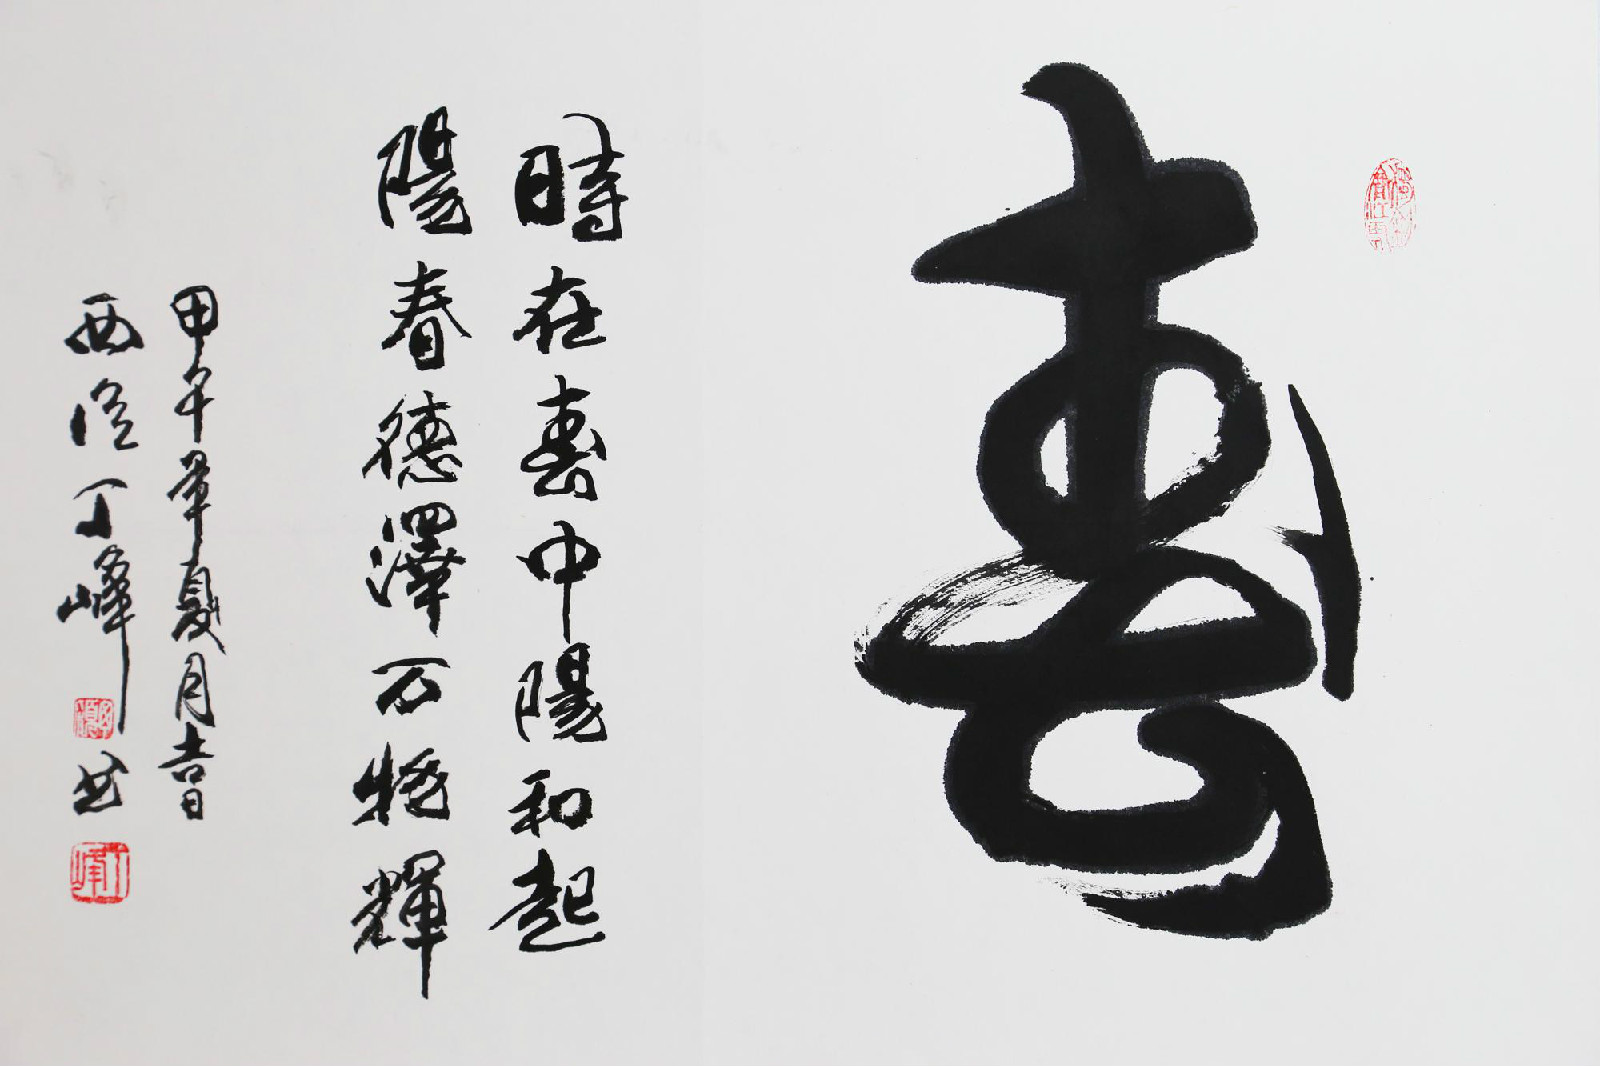 春
時在春中陽和起
陽春德澤万物輝
甲午年夏月吉日
丁峰
丁峰